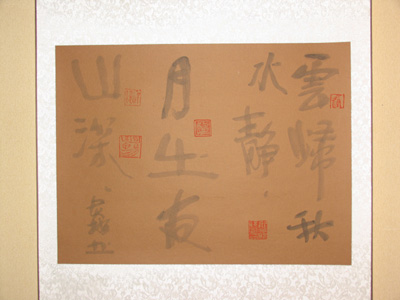 雲歸秋
水靜
月生夜
山深